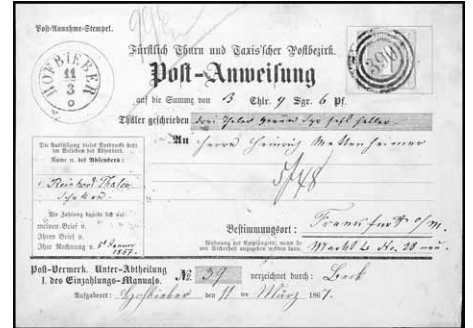 Post-Annahme-Stempel.
HOFBIEBER
11
3
390
Fürstlich Thurn und Taxis'scher Postbezirk.
Post-Anweisung
auf die Summe von 3 Thlr. 9 Sgr. 6 Pf.
Thaler geschrieben drei Thaler neun Sgr sechs
An Herrn Heinrich Mettenheimer
Die Ausfüllung dieses Vordrucks steht
im Belieben des Absenders.
Name u. des Absenders:
Die Zahlung bezieht sich auf
meinen Brief v.
Ihren Brief v.
Ihre Rechnung v.
1867.
Bestimmungsort: Frankfurt o/m.
Wohnung des Empfängers, wenn sie
mit Sicherheit angegeben werden kann.
Markt L. No. 28 neu.
Post-Vermerk. Unter-Abtheilung
I. des Einzahlungs-Manuals.
No 39 verzeichnet durch:
Aufgabeort: Hofbieber den 11 ten März 1867.